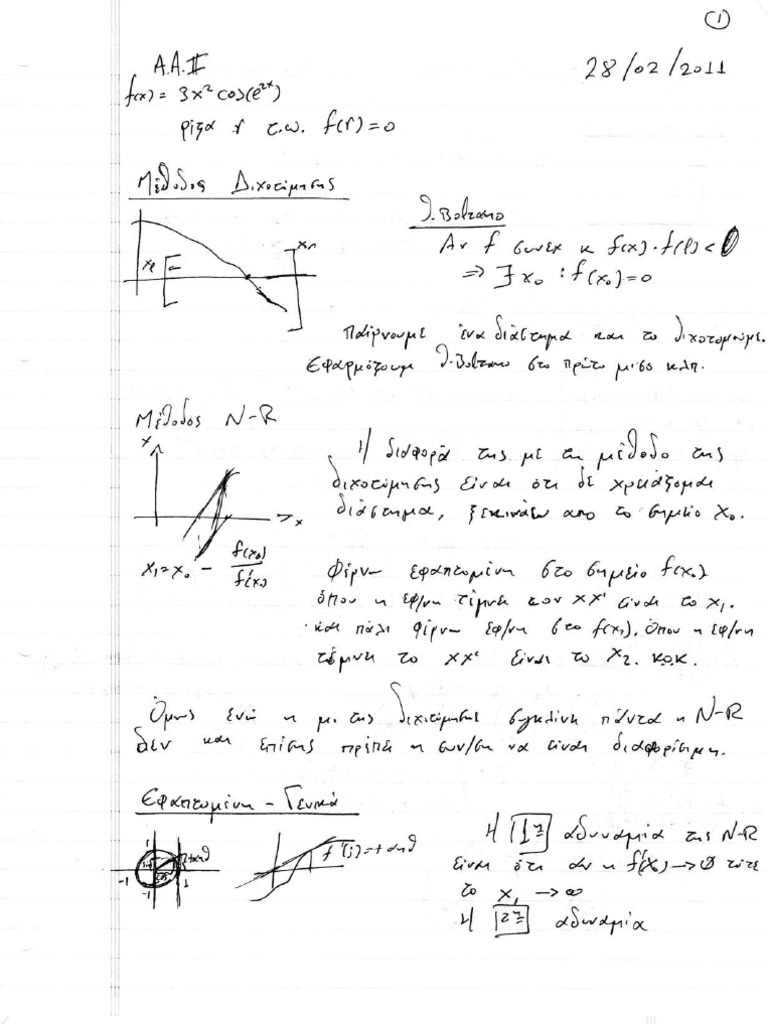 ①
Α.Α.ΙΙ
28/02/2011
f(x) = 3x² cos(e²ˣ)
ρίζα r τ.ω. f(r)=0
Μέθοδος Διχοτόμησης
Θ. Bolzano
Αν f συνεχ κ f(x)·f(ℓ)<0
⇒ ∃ x₀ : f(x₀)=0
xℓ
xr
Παίρνουμε ένα διάστημα και το διχοτομούμε.
Εφαρμόζουμε Θ.Bolzano στο πρώτο μισο κλπ.
Μέθοδος N-R
x
x
Η διαφορά της με τη μέθοδο της
διχοτόμησης είναι ότι δε χρειάζομαι
διάστημα, ξεκινάω απο το σημείο x₀.
x₁=x₀ - f(x₀)/f'(x₀)
Φέρνω εφαπτομένη στο σημείο f(x₀)
όπου η εφ/νη τέμνει τον xx' είναι το x₁.
και πάλι φέρνω εφ/νη στο f(x₁). Όπου η εφ/νη
τέμνει το xx' είναι το x₂. κ.ο.κ.
Όμως ενώ η μ. της διχοτόμησης συγκλίνει πάντα η N-R
δεν και επίσης πρέπει η συν/ση να είναι διαφορίσιμη.
Εφαπτομένη - Γενικά
1
-1
1
-1
tanθ
f'(j)=tanθ
Η 1η αδυναμία της N-R
είναι ότι αν η f'(x₀)→0 τότε
το x₁ →∞
Η 2η αδυναμία